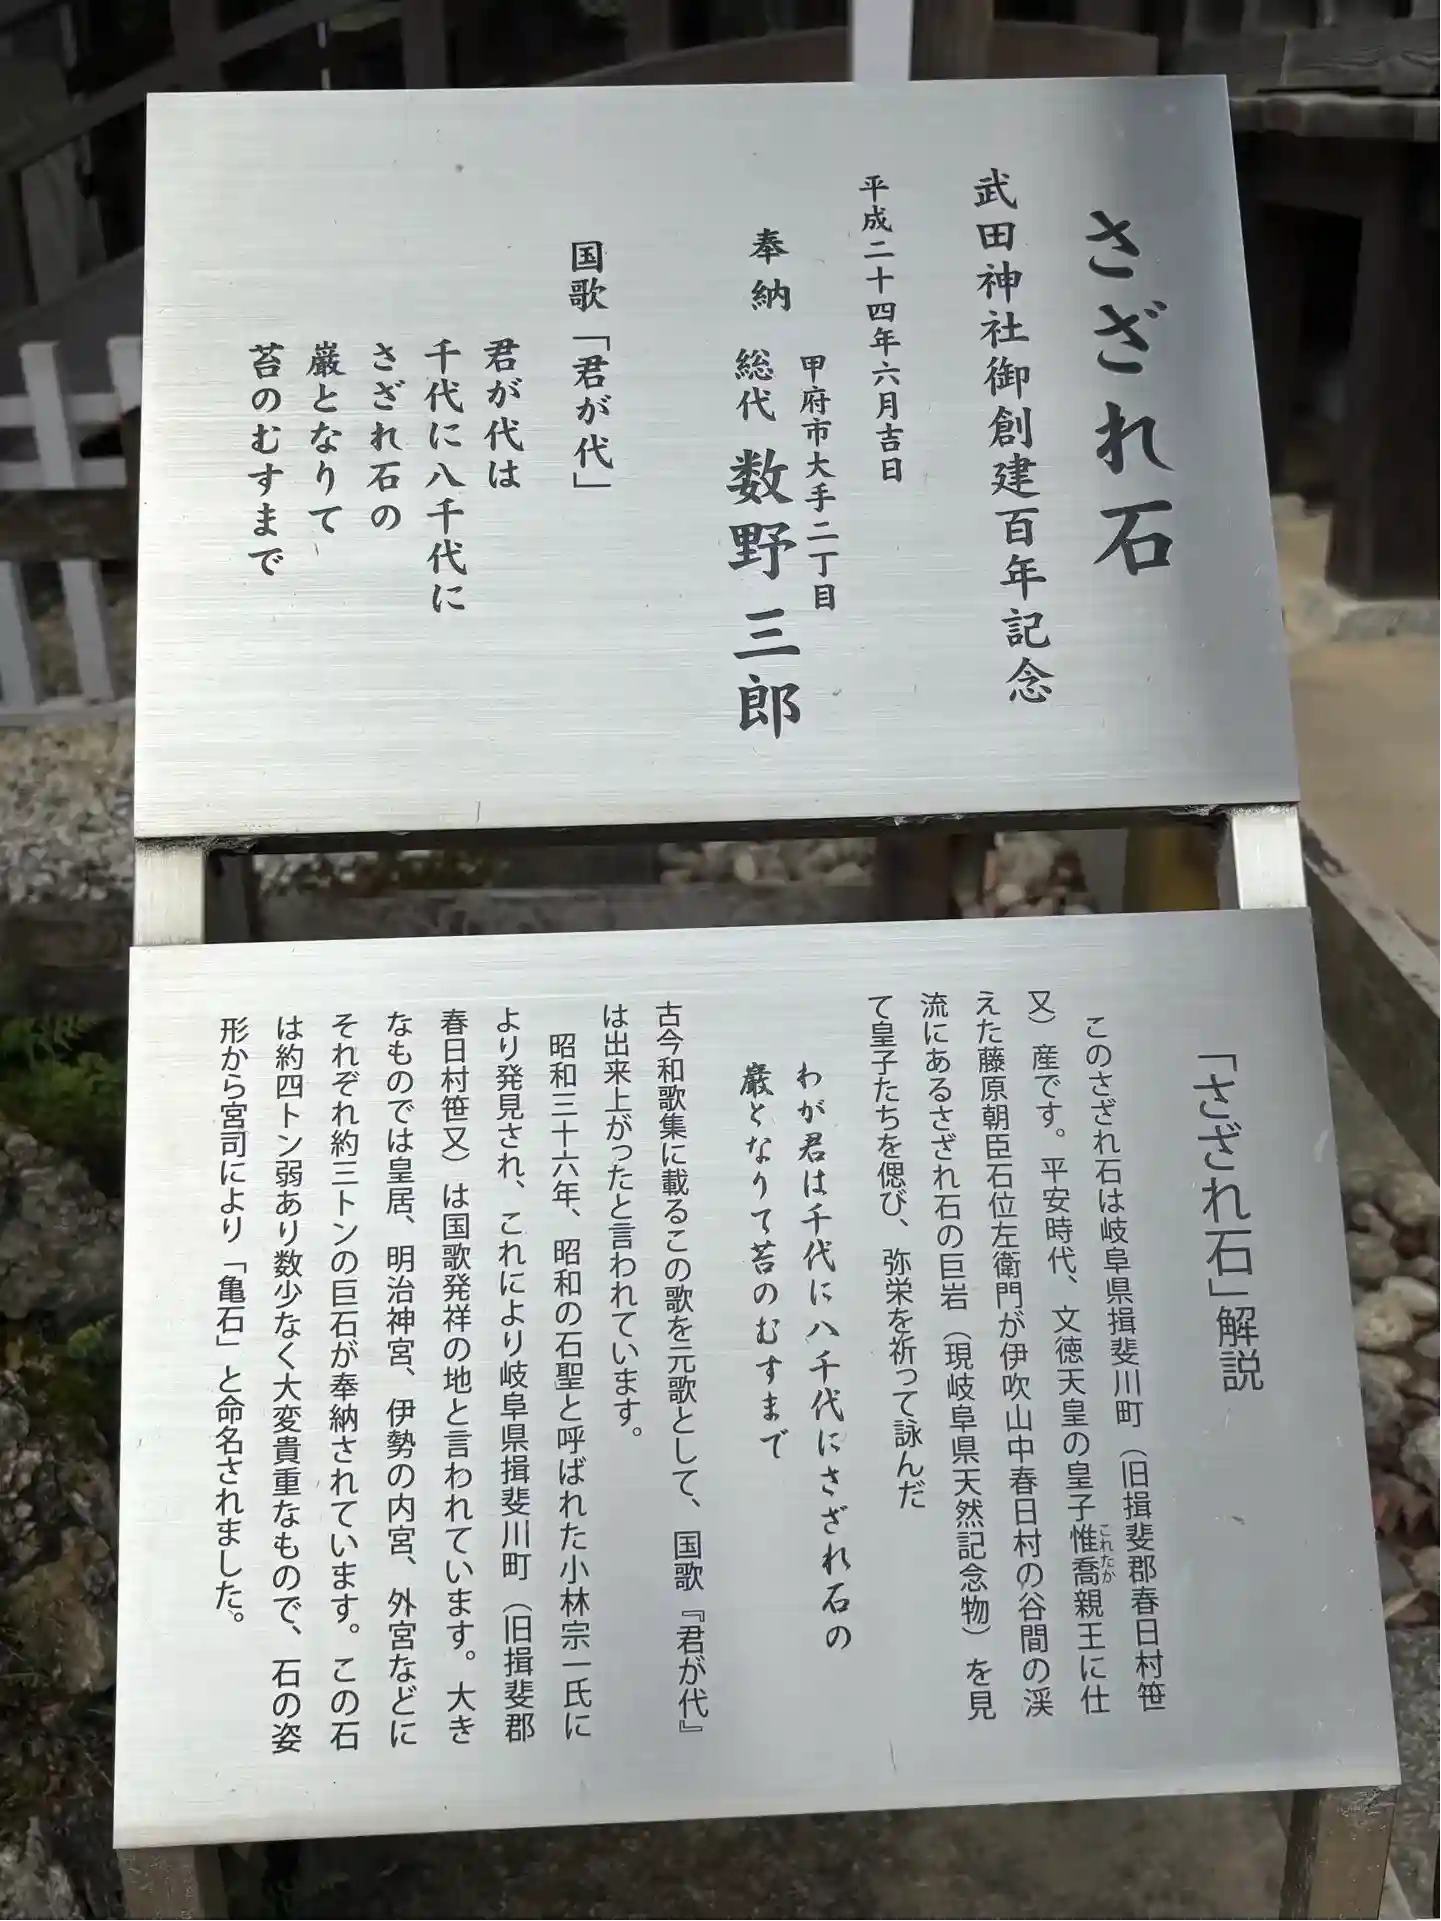 さざれ石
武田神社御創建百年記念
平成二十四年六月吉日
甲府市大手二丁目
奉納 総代 数野 三郎
国歌「君が代」
君が代は
千代に八千代に
さざれ石の
巌となりて
苔のむすまで
「さざれ石」解説
このさざれ石は岐阜県揖斐川町（旧揖斐郡春日村笹
又）産です。平安時代、文徳天皇の皇子惟喬親王に仕
これたか
えた藤原朝臣石位左衛門が伊吹山中春日村の谷間の渓
流にあるさざれ石の巨岩（現岐阜県天然記念物）を見
て皇子たちを偲び、弥栄を祈って詠んだ
わが君は千代に八千代にさざれ石の
巌となりて苔のむすまで
古今和歌集に載るこの歌を元歌として、国歌『君が代』
は出来上がったと言われています。
昭和三十六年、昭和の石聖と呼ばれた小林宗一氏に
より発見され、これにより岐阜県揖斐川町（旧揖斐郡
春日村笹又）は国歌発祥の地と言われています。大き
なものでは皇居、明治神宮、伊勢の内宮、外宮などに
それぞれ約三トンの巨石が奉納されています。この石
は約四トン弱あり数少なく大変貴重なもので、石の姿
形から宮司により「亀石」と命名されました。